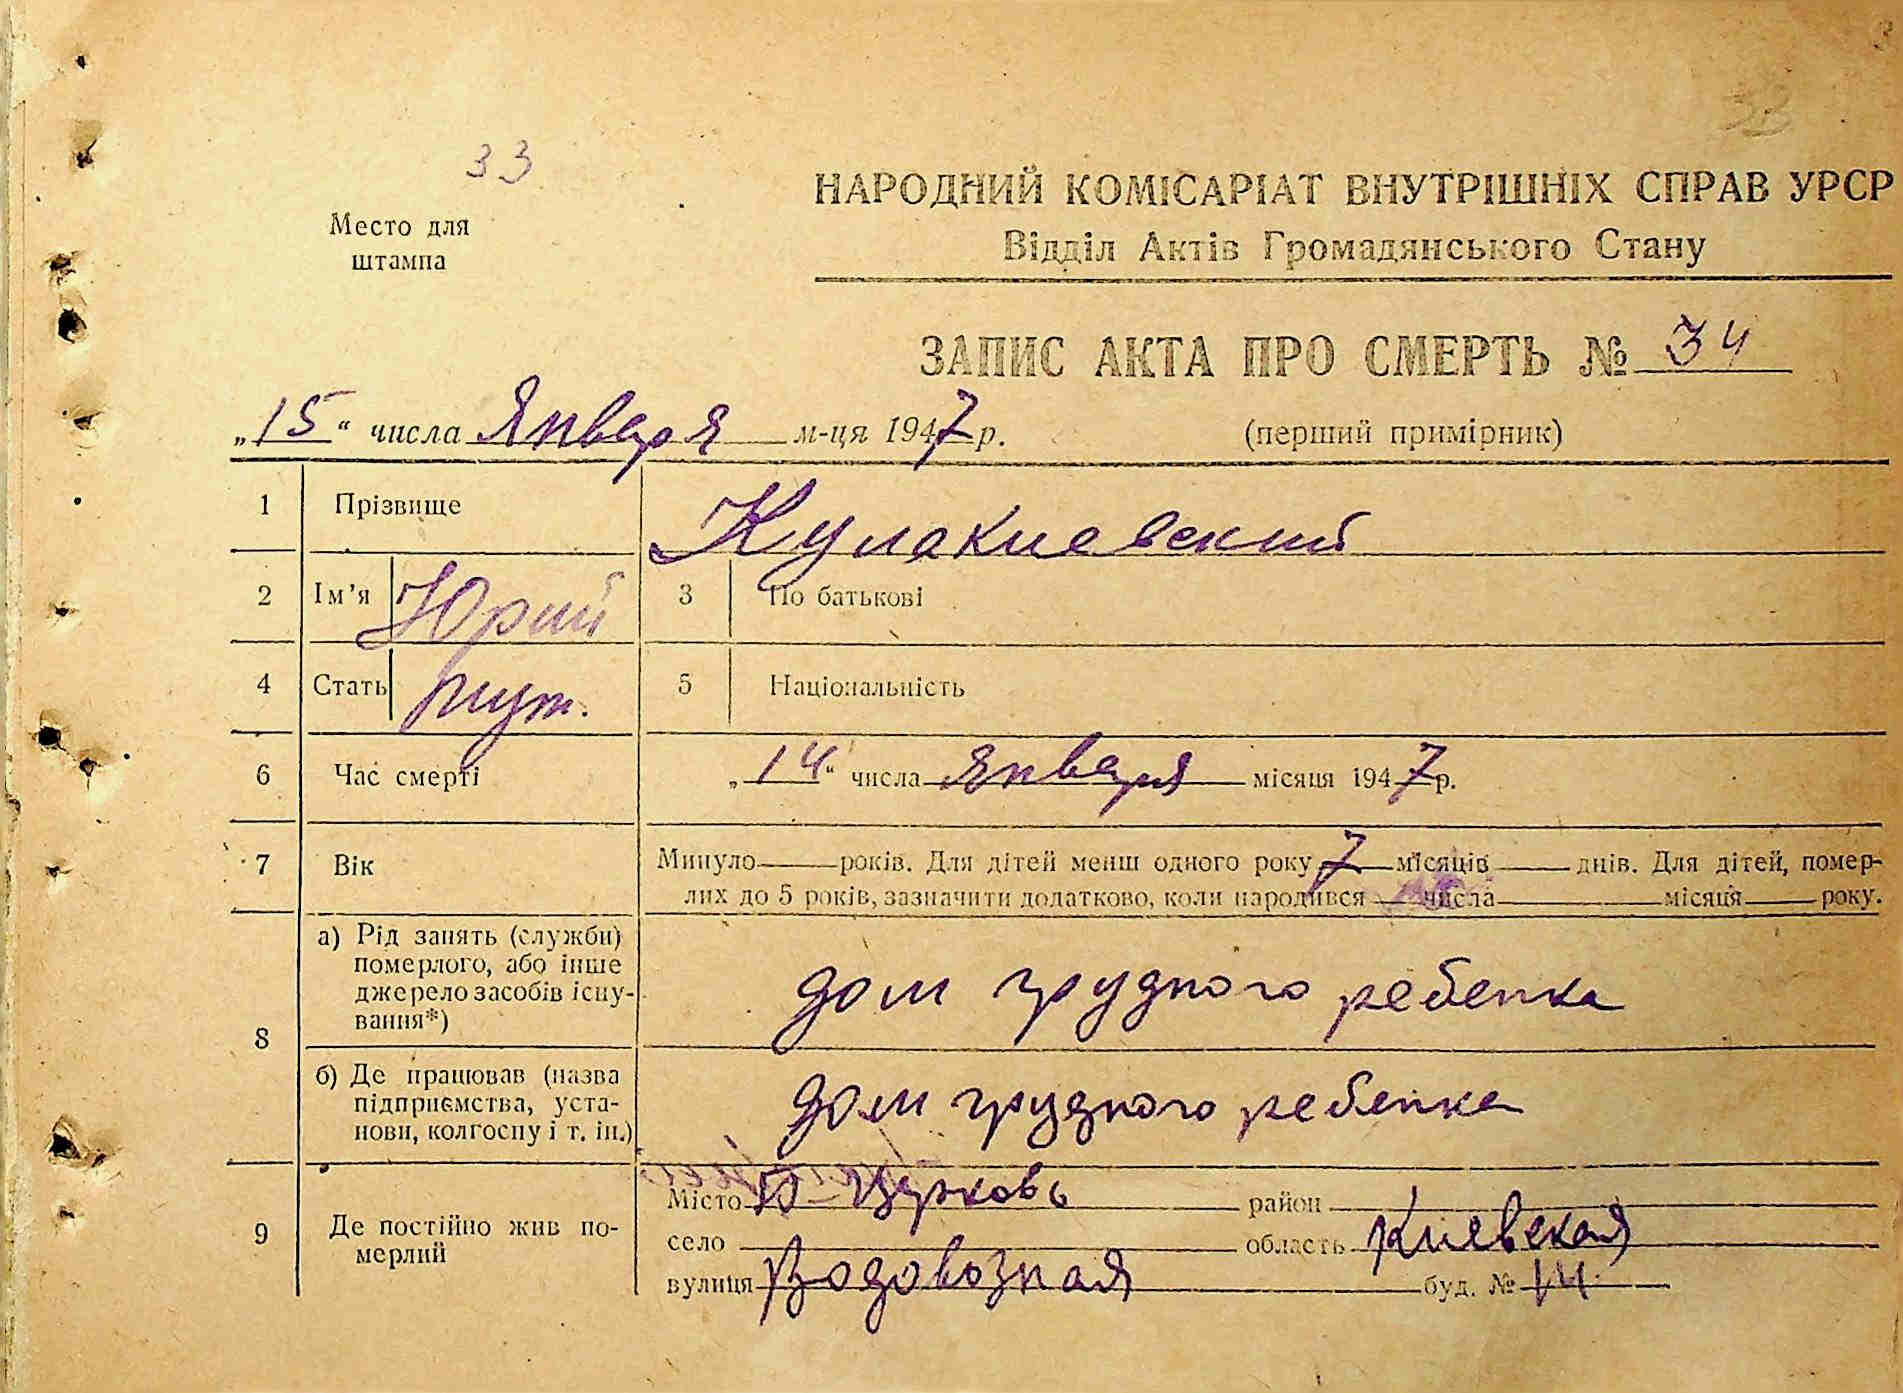 33
33
Место для
штампа
НАРОДНИЙ КОМІСАРІАТ ВНУТРІШНІХ СПРАВ УРСР
Відділ Актів Громадянського Стану
ЗАПИС АКТА ПРО СМЕРТЬ № 34
„15“ числа Января м-ця 1947 р.
(перший примірник)
1 Прізвище Кулакиевский
2 Ім'я Юрий 3 По батькові
4 Стать муж. 5 Національність
6 Час смерті „14“ числа января місяця 1947 р.
7 Вік Минуло років. Для дітей менш одного року 7 місяців днів. Для дітей, помер-
лих до 5 років, зазначити додатково, коли народився числа місяця року.
8 а) Рід занять (служби)
померлого, або інше
джерело засобів існу-
вання*)
дом грудного ребенка
б) Де працював (назва
підприємства, уста-
нови, колгоспу і т. ін.)
дом грудного ребенка
9 Де постійно жив по-
мерлий
Місто Б-Церковь район
село область Киевская
вулиця Водовозная буд. № 14